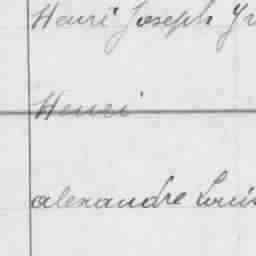 Henri Joseph
Henri
alexandre Louis